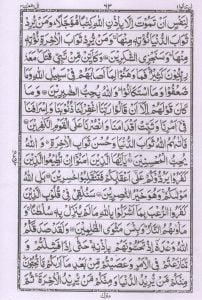 ٦٣
لِنَفْسٍ اَنْ تَمُوْتَ اِلَّا بِاِذْنِ اللّٰهِ كِتٰبًا مُّؤَجَّلًا ؕ وَمَنْ يُّرِدْ
ثَوَابَ الدُّنْيَا نُؤْتِهٖ مِنْهَا ۚ وَمَنْ يُّرِدْ ثَوَابَ الْاٰخِرَةِ نُؤْتِهٖ
مِنْهَا ؕ وَسَنَجْزِى الشّٰكِرِيْنَ ۝ وَكَاَيِّنْ مِّنْ نَّبِىٍّ قٰتَلَ ۙ مَعَهٗ
رِبِّيُّوْنَ كَثِيْرٌ ۚ فَمَا وَهَنُوْا لِمَاۤ اَصَابَهُمْ فِىْ سَبِيْلِ اللّٰهِ وَمَا
ضَعُفُوْا وَمَا اسْتَكَانُوْا ؕ وَاللّٰهُ يُحِبُّ الصّٰبِرِيْنَ ۝ وَمَا
كَانَ قَوْلَهُمْ اِلَّاۤ اَنْ قَالُوْا رَبَّنَا اغْفِرْ لَنَا ذُنُوْبَنَا وَاِسْرَافَنَا
فِىْۤ اَمْرِنَا وَثَبِّتْ اَقْدَامَنَا وَانْصُرْنَا عَلَى الْقَوْمِ الْكٰفِرِيْنَ ۝
فَاٰتٰىهُمُ اللّٰهُ ثَوَابَ الدُّنْيَا وَحُسْنَ ثَوَابِ الْاٰخِرَةِ ؕ وَاللّٰهُ
يُحِبُّ الْمُحْسِنِيْنَ ۝ يٰۤاَيُّهَا الَّذِيْنَ اٰمَنُوْۤا اِنْ تُطِيْعُوا الَّذِيْنَ
كَفَرُوْا يَرُدُّوْكُمْ عَلٰۤى اَعْقَابِكُمْ فَتَنْقَلِبُوْا خٰسِرِيْنَ ۝ بَلِ اللّٰهُ
مَوْلٰىكُمْ ۚ وَهُوَ خَيْرُ النّٰصِرِيْنَ ۝ سَنُلْقِىْ فِىْ قُلُوْبِ الَّذِيْنَ
كَفَرُوا الرُّعْبَ بِمَاۤ اَشْرَكُوْا بِاللّٰهِ مَا لَمْ يُنَزِّلْ بِهٖ سُلْطٰنًا ۚ وَ
مَاْوٰىهُمُ النَّارُ ؕ وَبِئْسَ مَثْوَى الظّٰلِمِيْنَ ۝ وَلَقَدْ صَدَقَكُمُ
اللّٰهُ وَعْدَهٗۤ اِذْ تَحُسُّوْنَهُمْ بِاِذْنِهٖ ۚ حَتّٰۤى اِذَا فَشِلْتُمْ وَ
تَنَازَعْتُمْ فِى الْاَمْرِ وَعَصَيْتُمْ مِّنْۢ بَعْدِ مَاۤ اَرٰىكُمْ مَّا تُحِبُّوْنَ ؕ
مِنْكُمْ مَّنْ يُّرِيْدُ الدُّنْيَا وَمِنْكُمْ مَّنْ يُّرِيْدُ الْاٰخِرَةَ ۚ ثُمَّ